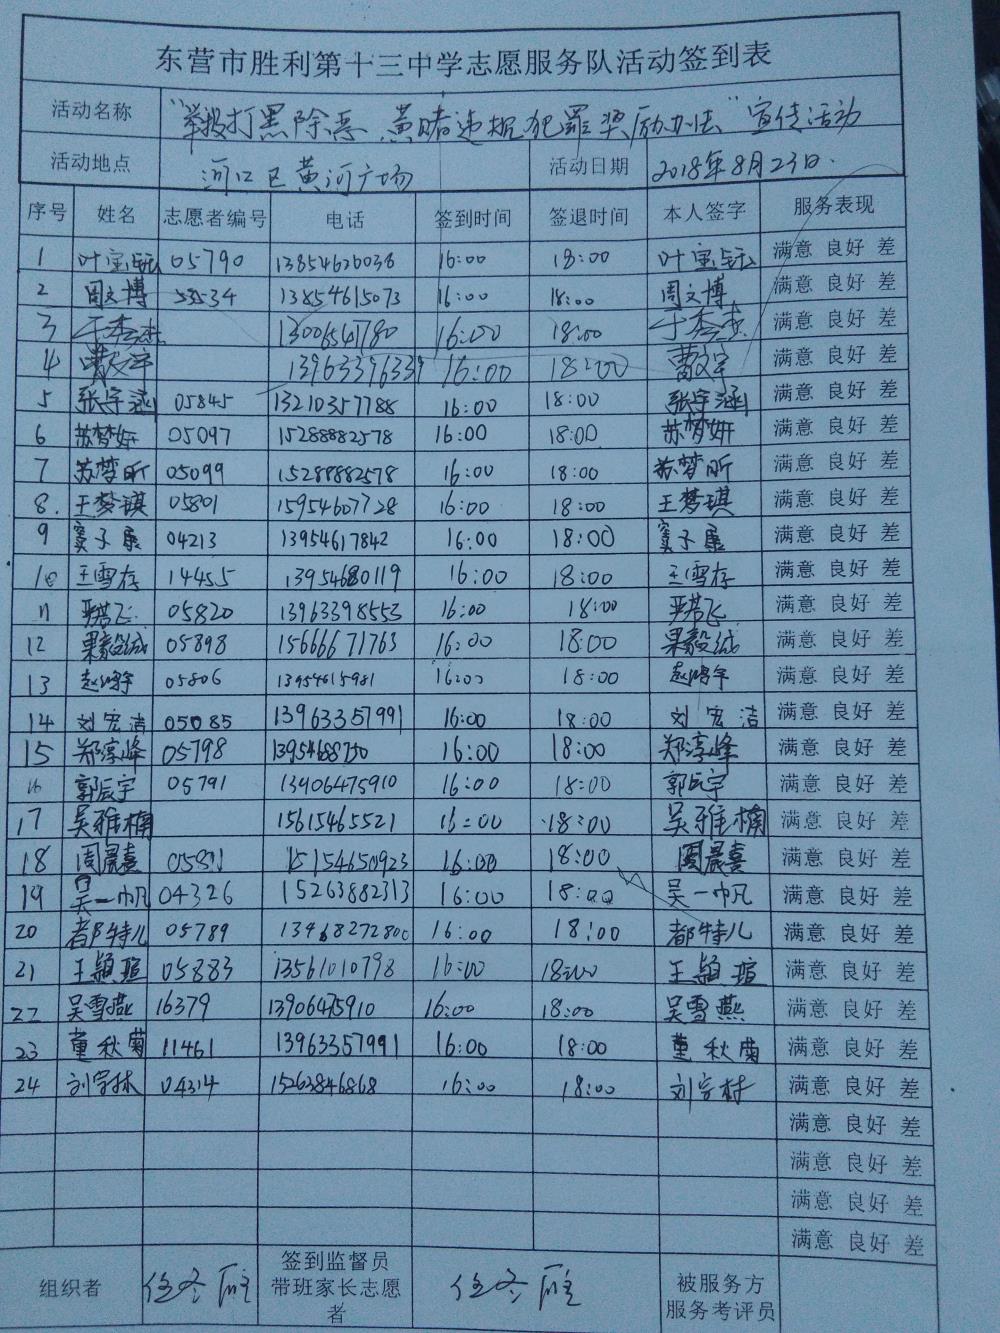 东营市胜利第十三中学志愿服务队活动签到表
活动名称 "举报打黑除恶 黄赌违规犯罪奖励办法"宣传活动
活动地点 河口区黄河广场 活动日期 2018年8月23日.
序号 姓名 志愿者编号 电话 签到时间 签退时间 本人签字 服务表现
1 叶宝钰 05790 13854620038 16:00 18:00 叶宝钰 满意 良好 差
2 周文博 13854615073 16:00 18:00 周文博 满意 良好 差
3 于秀杰 13006541780 16:00 18:00 于秀杰 满意 良好 差
4 曹文宇 13963396339 16:00 18:00 曹文宇 满意 良好 差
5 张宇涵 05845 13210357788 16:00 18:00 张宇涵 满意 良好 差
6 苏梦妍 05097 15288882578 16:00 18:00 苏梦妍 满意 良好 差
7 苏梦昕 05099 15288882578 16:00 18:00 苏梦昕 满意 良好 差
8. 王梦琪 05801 15954607728 16:00 18:00 王梦琪 满意 良好 差
9 窦子康 04213 13954617842 16:00 18:00 窦子康 满意 良好 差
10 王雪存 14455 13954680119 16:00 18:00 王雪存 满意 良好 差
11 严若飞 05820 13963398553 16:00 18:00 严若飞 满意 良好 差
12 果毅诚 05898 15666671763 16:00 18:00 果毅诚 满意 良好 差
13 赵鸿宇 05806 13954615981 16:00 18:00 赵鸿宇 满意 良好 差
14 刘宏洁 05085 13963357991 16:00 18:00 刘宏洁 满意 良好 差
15 郑淳峰 05798 1395468750 16:00 18:00 郑淳峰 满意 良好 差
16 郭辰宇 05791 13406475910 16:00 18:00 郭辰宇 满意 良好 差
17 吴雅楠 15615465521 16:00 18:00 吴雅楠 满意 良好 差
18 周晨熹 15154650923 16:00 18:00 周晨熹 满意 良好 差
19 吴一帆 04326 15263882313 16:00 18:00 吴一帆 满意 良好 差
20 都特儿 05789 13468272800 16:00 18:00 都特儿 满意 良好 差
21 王颖瑄 05883 13561010798 16:00 18:00 王颖瑄 满意 良好 差
22 吴雪燕 16379 13906475910 16:00 18:00 吴雪燕 满意 良好 差
23 董秋菊 11461 13963357991 16:00 18:00 董秋菊 满意 良好 差
24 刘宇林 04314 15263846868 16:00 18:00 刘宇林 满意 良好 差
满意 良好 差
满意 良好 差
满意 良好 差
满意 良好 差
组织者 签到监督员 被服务方
带班家长志愿 服务考评员
者